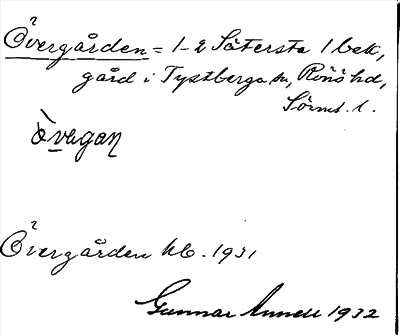 Övergården = 1-2 Sätersta 1 bek,
gård i Tystberga sn, Rönö hd,
Sörml. l.
òvagaɳ
Övergården kb. 1931
Gunnar 1932